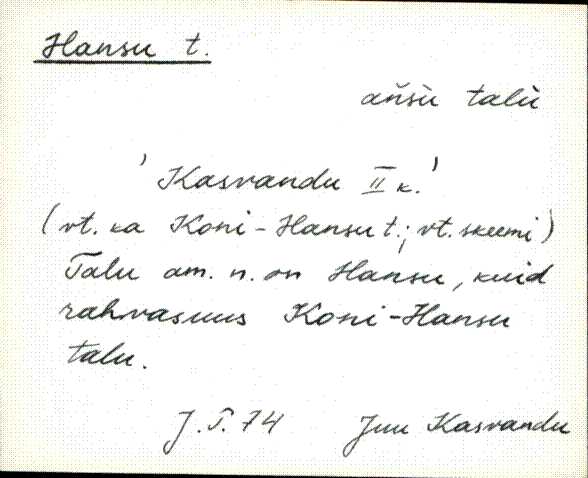 Hansu t.
ańsù talù
'Kasvandu II k.'
(vt. ka Koni-Hansu t.; vt. skeemi)
Talu am. n. on Hansu, kuid
rahvasuus Koni-Hansu
talu.
J.T. 74 Juu Kasvandu